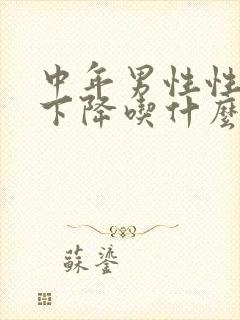 中年男性性
下降喫什麼
蘇鎏